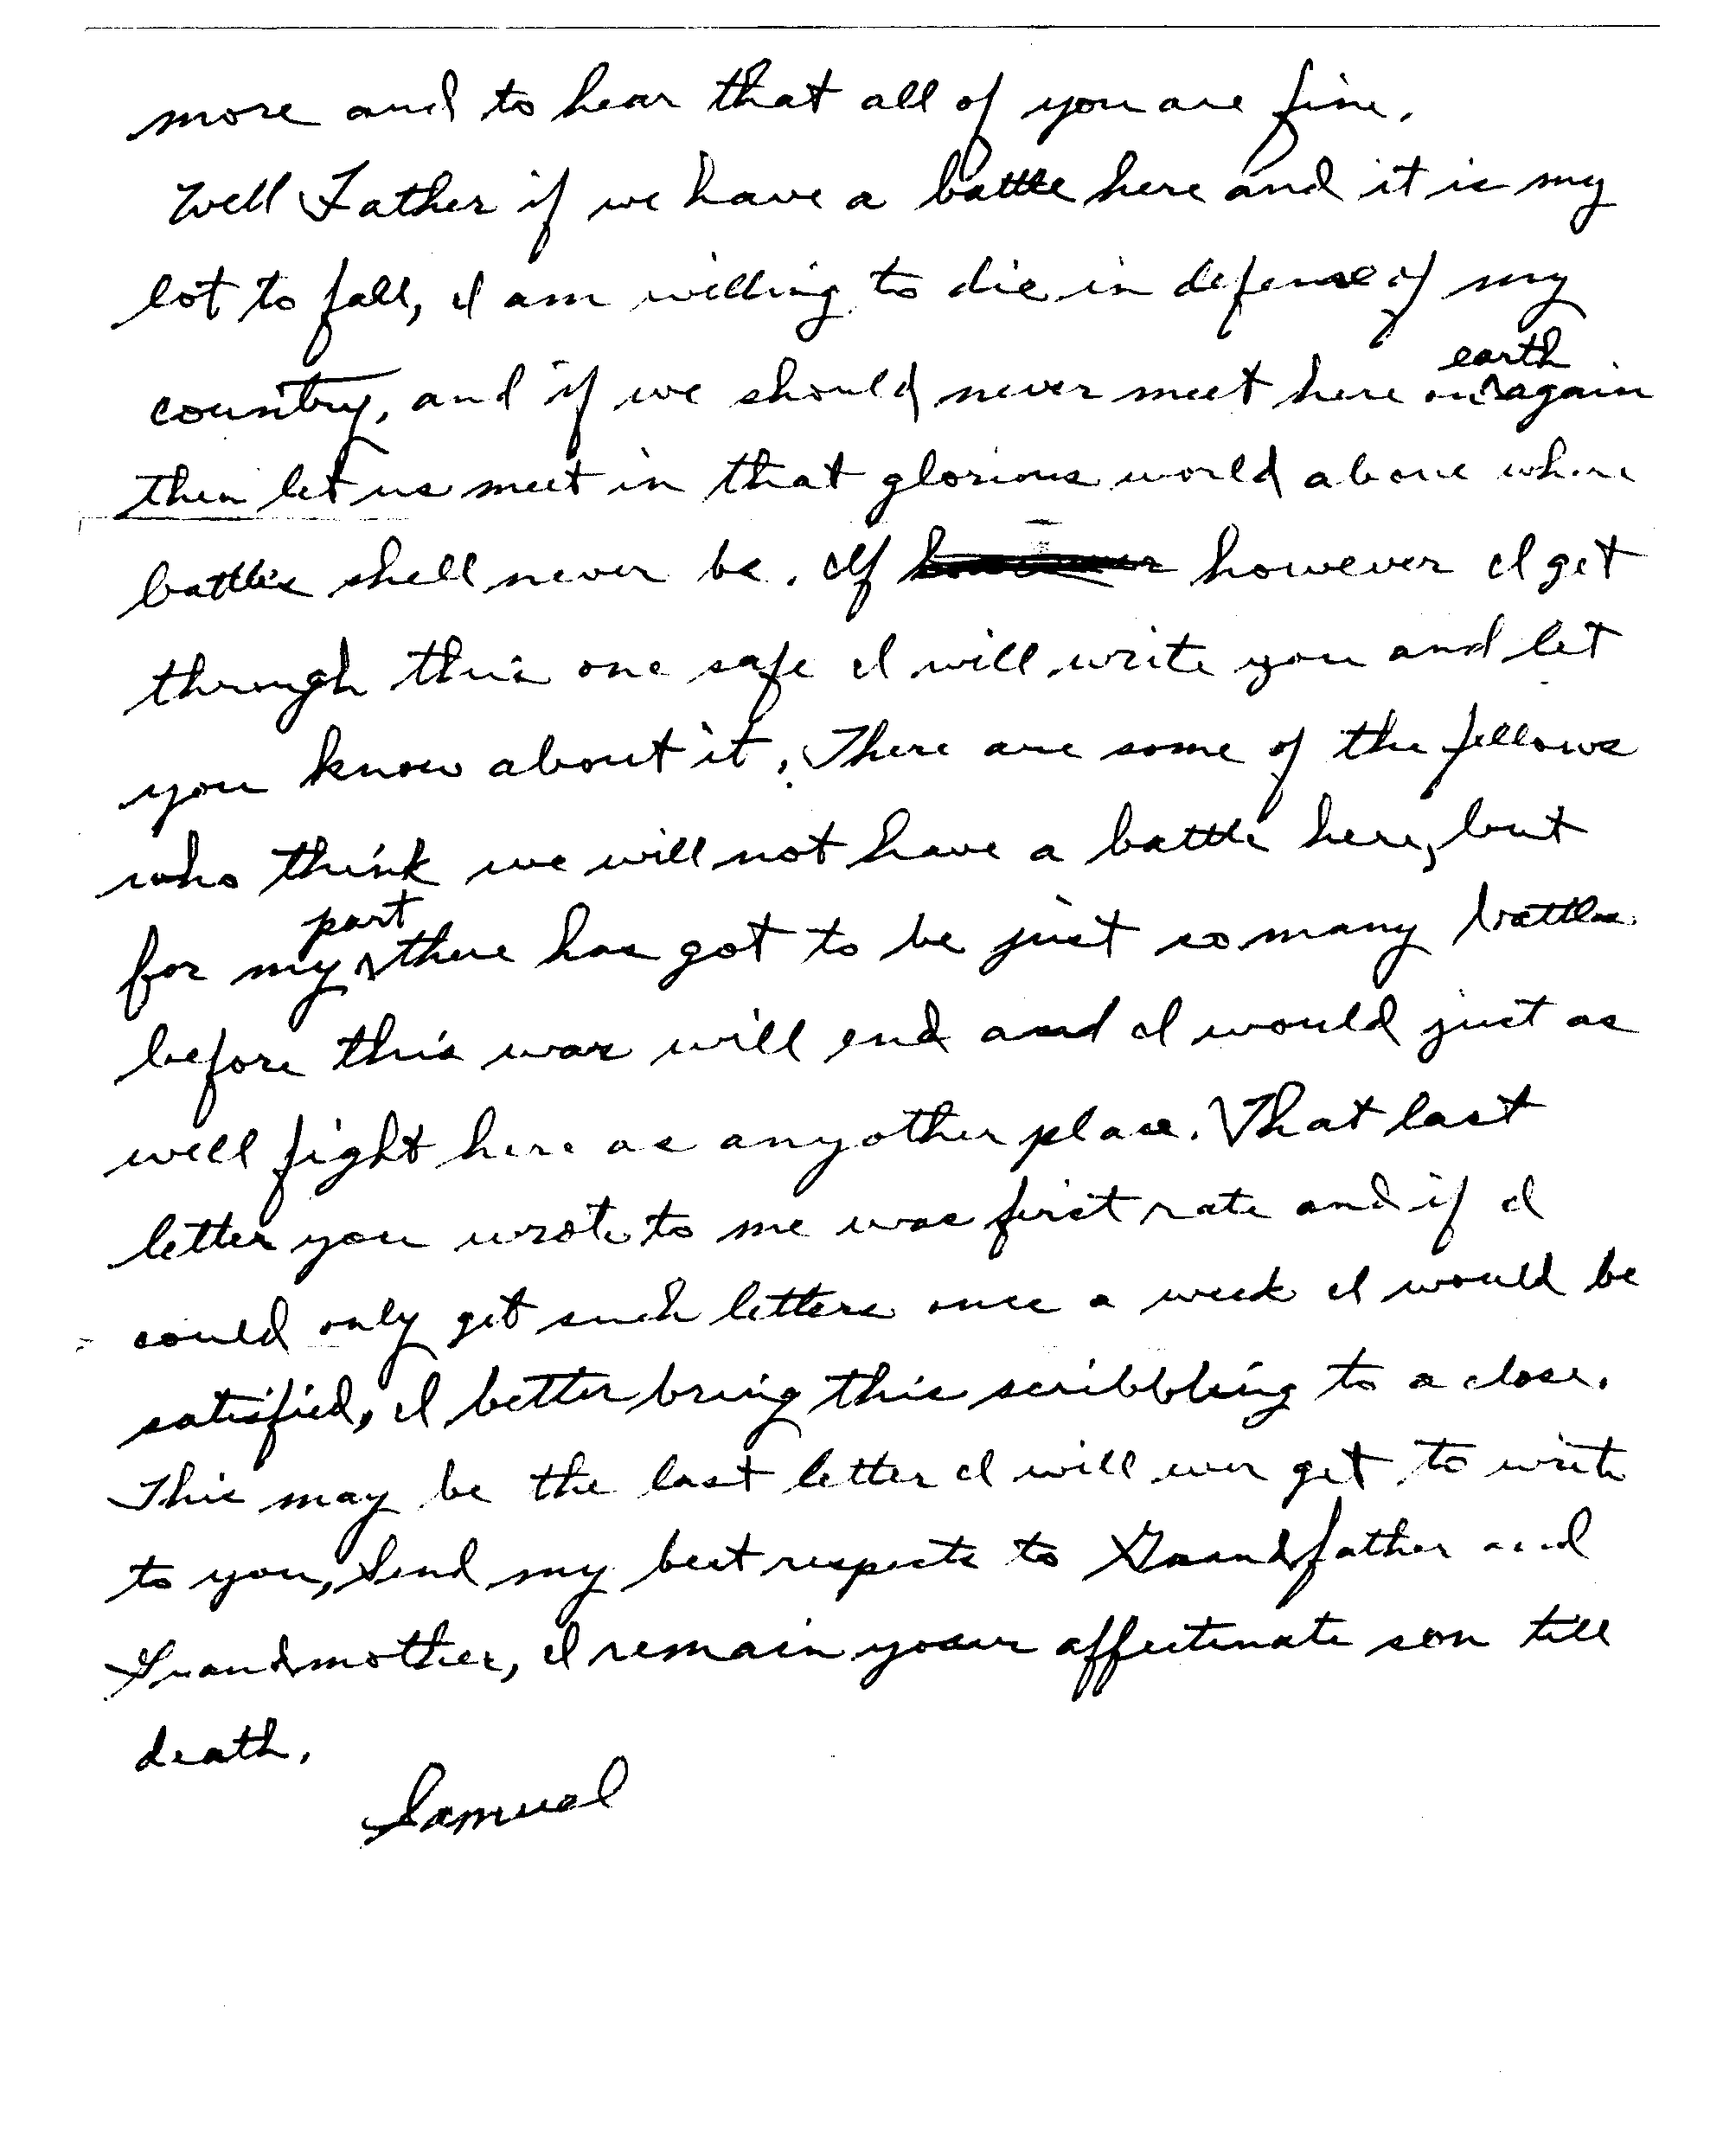 more and to hear that all of you are fine.
Well Father if we have a battle here and it is my
lot to fall, I am willing to die in defense of my
country, and if we should never meet here on earth again
then let us meet in that glorious world above where
battles shall never be. If however I get
through this one safe I will write you and let
you know about it. There are some of the fellows
who think we will not have a battle here, but
for my part there has got to be just so many battles
before this war will end and I would just as
well fight here as any other place. That last
letter you wrote to me was first rate and if I
could only get such letters once a week I would be
satisfied, I better bring this scribbling to a close.
This may be the last letter I will ever get to write
to you, Send my best respects to Grandfather and
Grandmother, I remain your affectinate son till
death.
Samuel